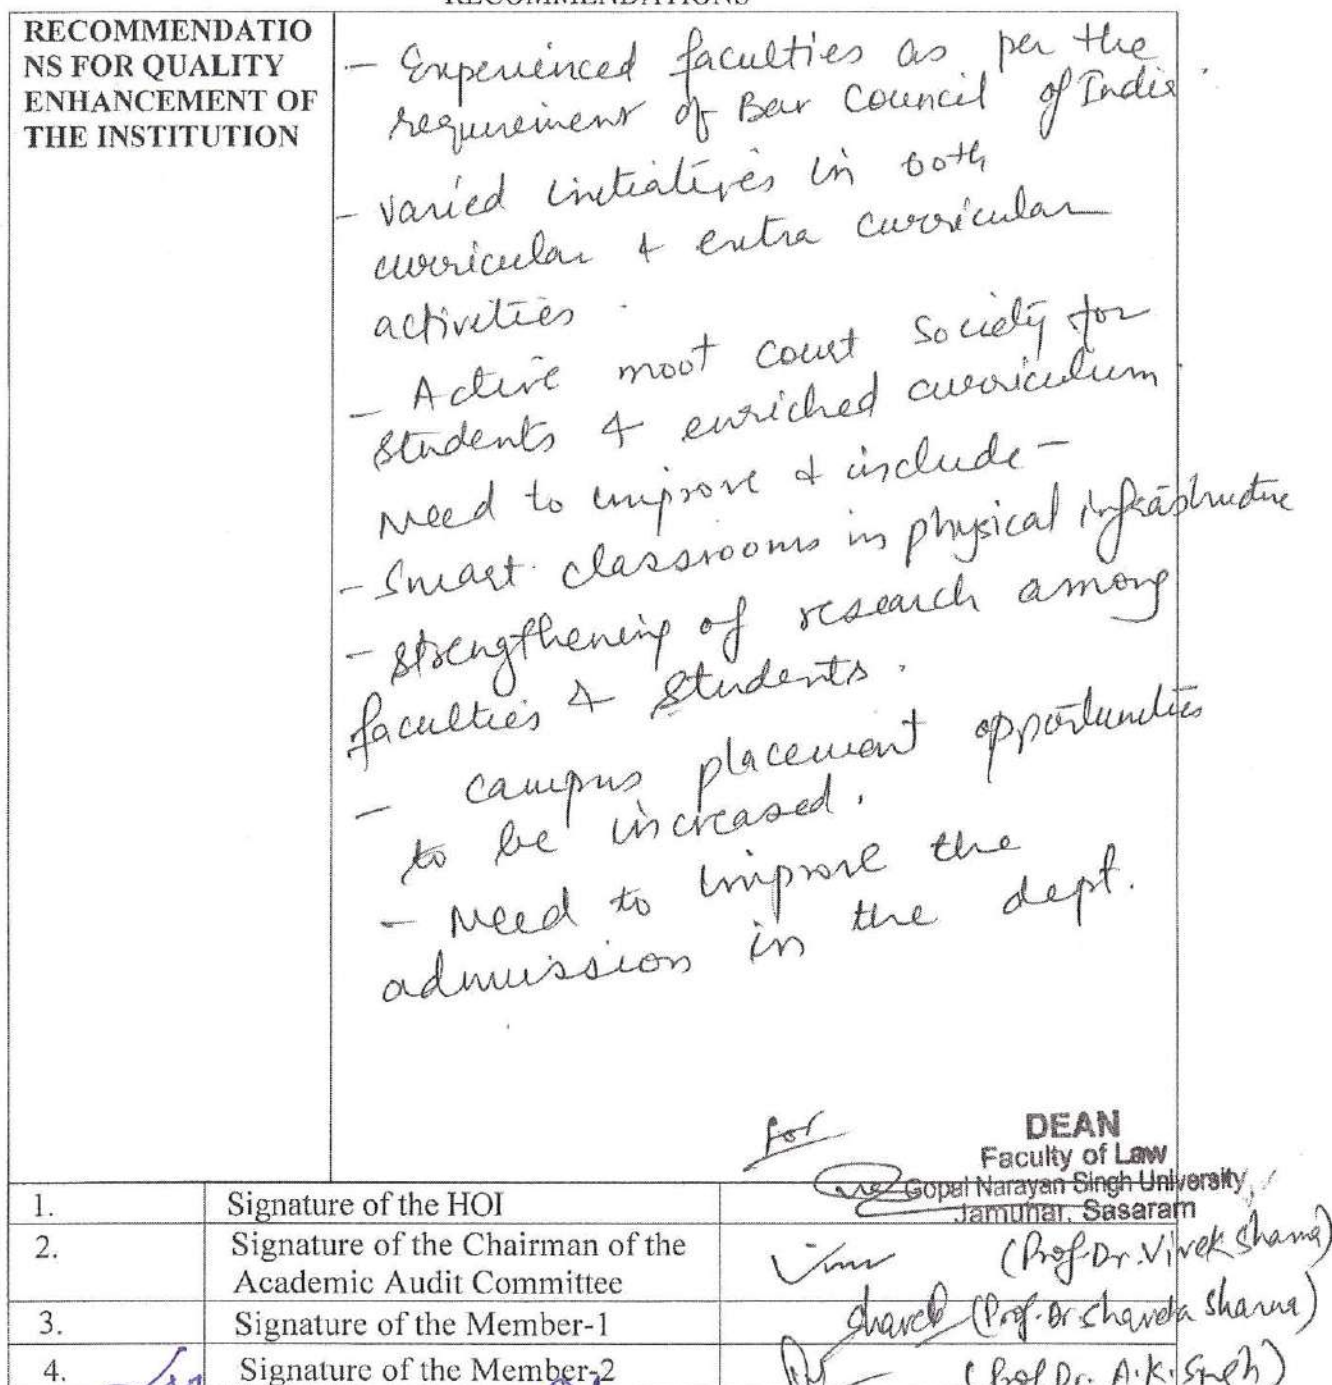 RECOMMENDATIONS
RECOMMENDATIO
NS FOR QUALITY
ENHANCEMENT OF
THE INSTITUTION
- Experienced faculties as per the
requirement of Bar Council of India.
- Varied initiatives in both
curricular & extra curricular
activities.
- Active moot court Society for
Students & enriched curriculum
Need to improve & include -
- Smart classrooms in physical infrastructure
- Strengthening of research among
faculties & Students.
- Campus placement opportunities
to be increased.
- Need to improve the
admission in the dept.
for
DEAN
Faculty of Law
Gopal Narayan Singh University,
Jamuhar, Sasaram
1. Signature of the HOI
2. Signature of the Chairman of the
Academic Audit Committee
(Prof. Dr. Vivek Sharma)
3. Signature of the Member-1
(Prof. Dr. Sharda Sharma)
4. Signature of the Member-2
(Prof Dr. A.K. Singh)